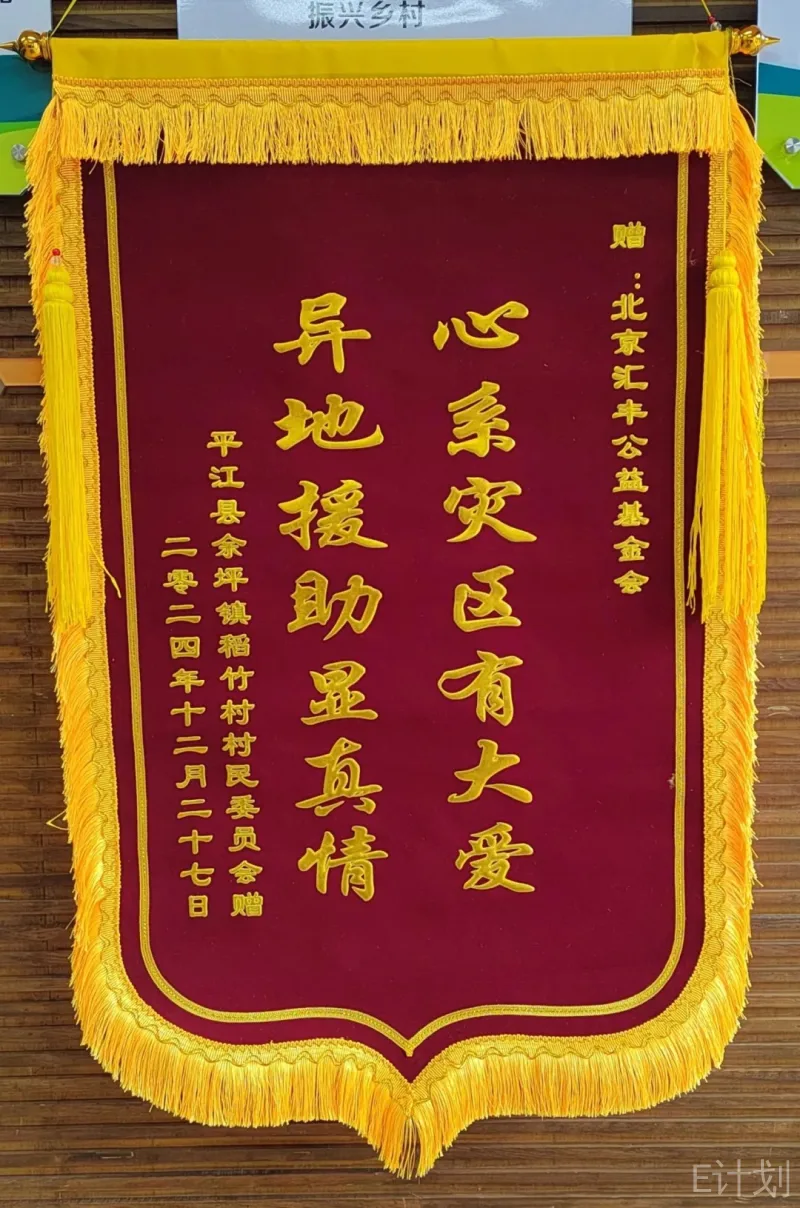 振兴乡村
赠：北京汇丰公益基金会
心系灾区有大爱
异地援助显真情
平江县余坪镇稻竹村村民委员会赠
二零二四年十二月二十七日
E计划